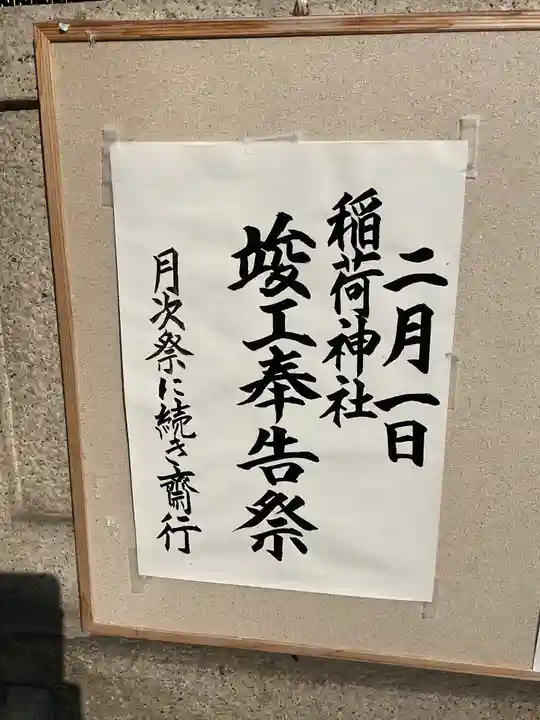 二月一日
稲荷神社
竣工奉告祭
月次祭に続き齋行